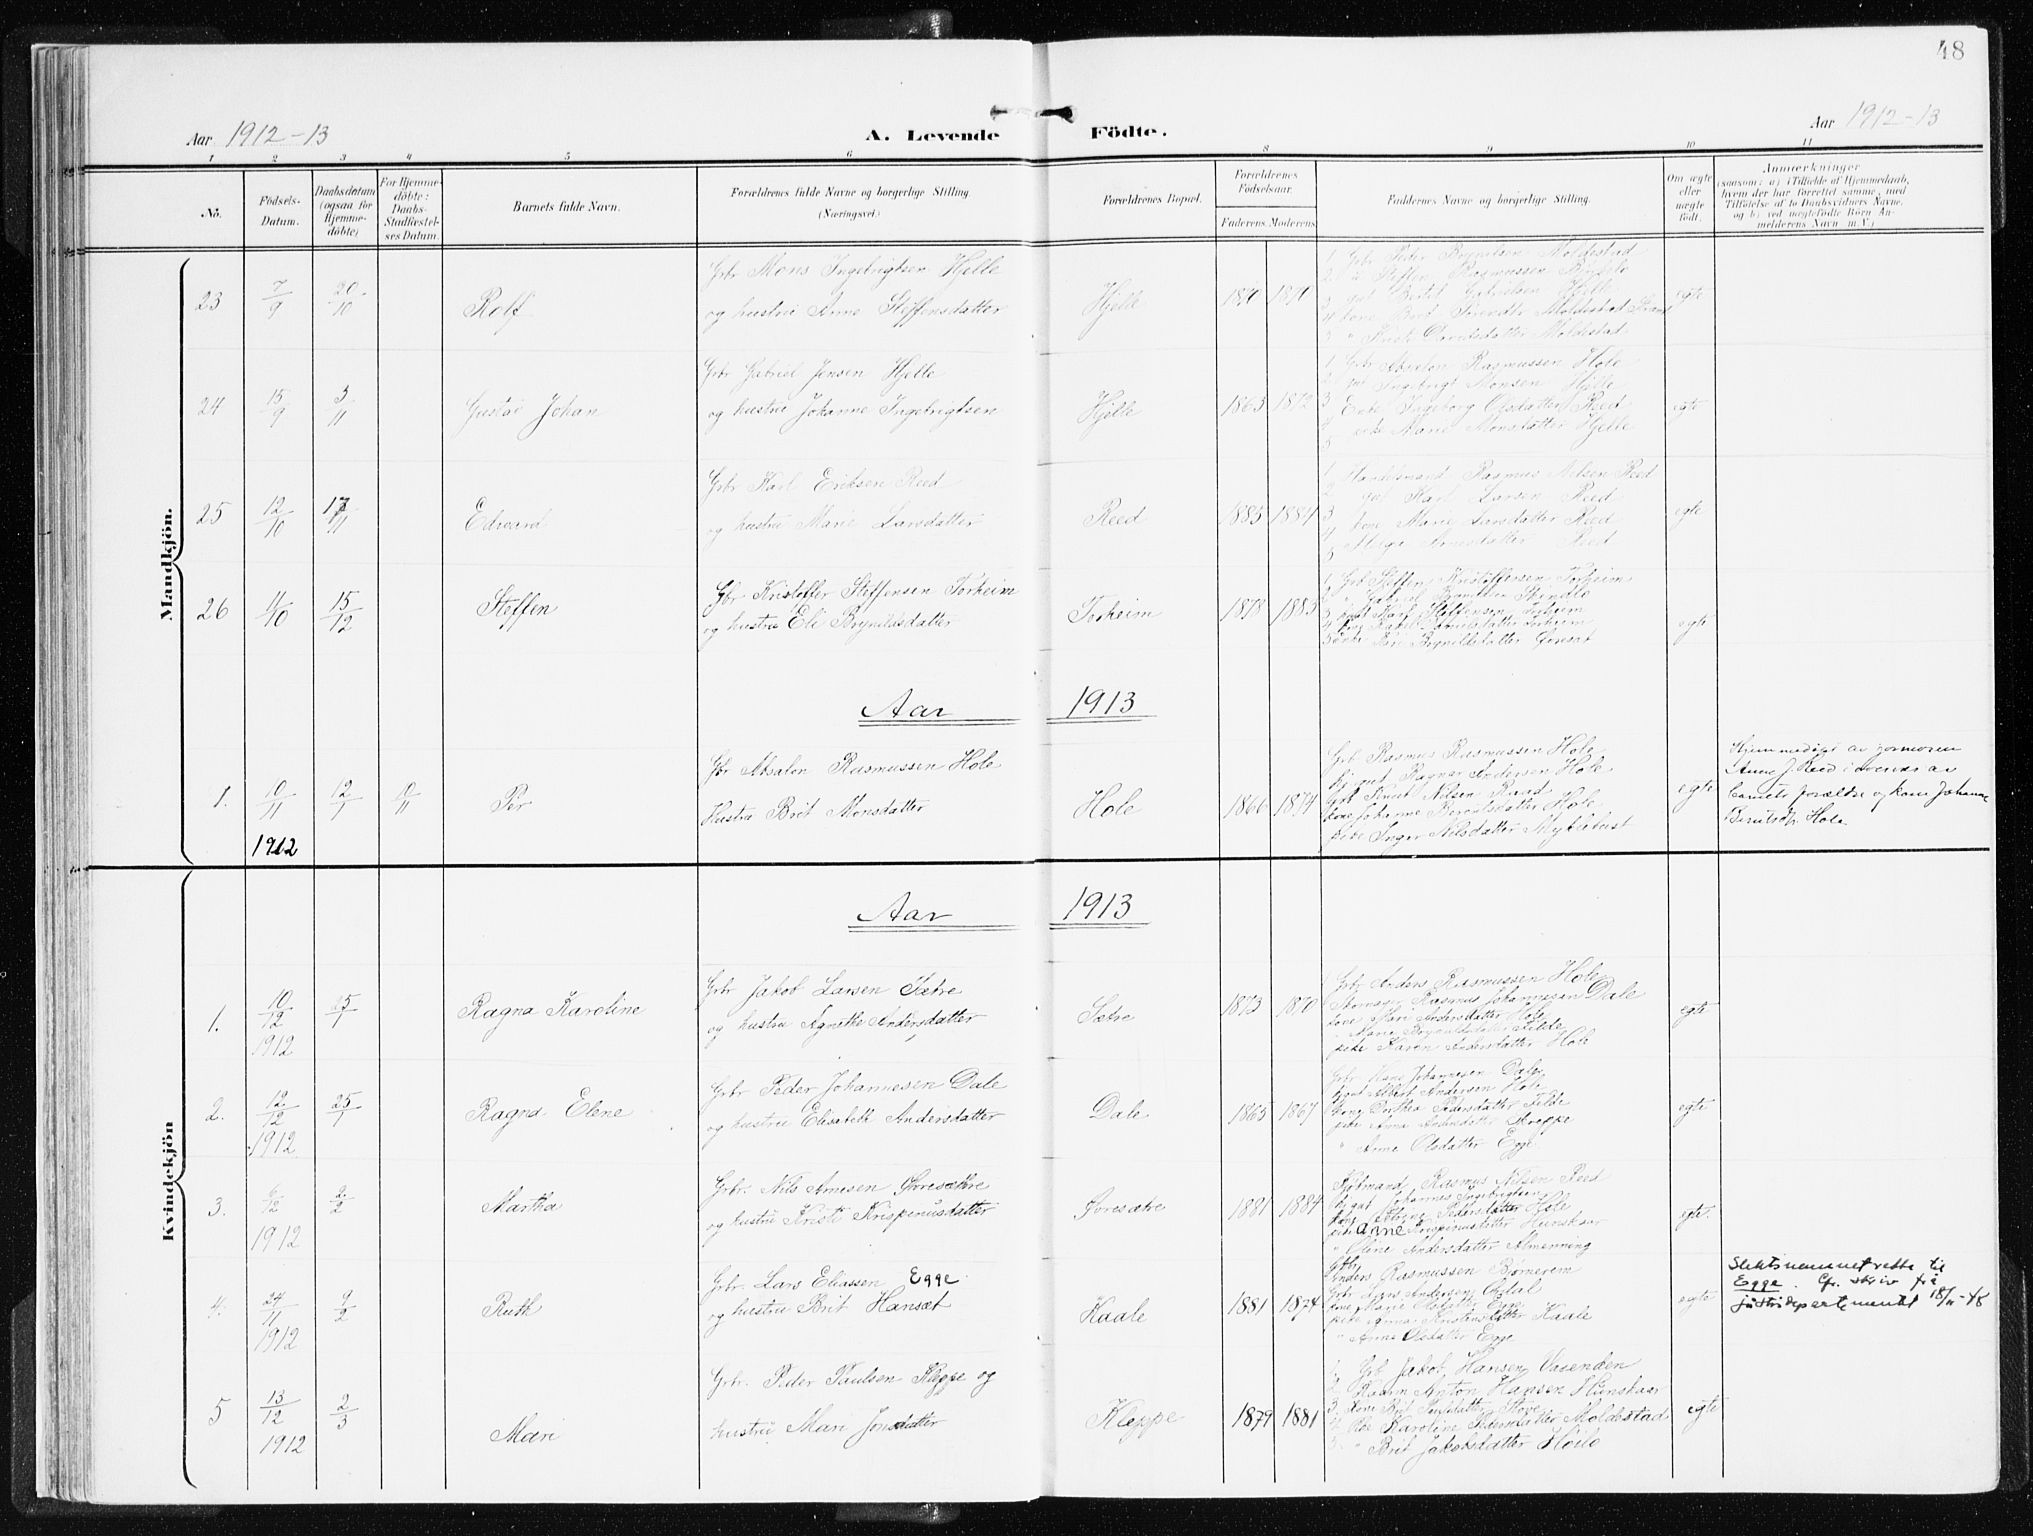 48
Aar 1912-13
A. Levende Födte.
Aar 1912-13
1 2 3 4 5 6 8 9 10 11
No.
Födsels-Datum.
Daabsdatum (ogsaa for Hjemme-döbte)
For Hjemme-döbte: Daabs-Stadfæstel-ses Datum.
Barnets fulde Navn.
Forældrenes fulde Navne og borgerlige Stilling.
(Næringsvei.)
Forældrenes Bopæl.
Forældrenes Födselsaar.
Faderens. Moderens.
Faddernes Navne og borgerlige Stilling.
Om ægte eller uægte födt.
Anmærkninger
(saasom: a) i Tilfælde af Hjemmedaab, hvem der har forrettet samme, med Tilföielse af to Daabsvidners Navne, og b) ved uægtefödte Börn An-melderens Navn m.V.)
Mandkjön.
23 7/9 20/10 Rolf
Grbr Mons Ingebrigtsen Hjelle
og hustru Anne Steffensdatter
Hjelle 1870 1870
1 Grbr Peder Moldestad
2 Steffen Rasmussen
3 Gabrielsen Hjelle
4 Kone Brit Moldestad
5 Moldestad
egte
24 15/9 3/11 Gustav Johan
Grbr Gabriel Jensen Hjelle
og hustru Johanne Ingebrigtsen
Hjelle 1863 1872
1 Grbr Absalon Rasmussen Hole
2 Ingebrigt Monsen Hjelle
3 Enke Ingeborg Olsdatter Reed
4 pike Marie Monsdatter Hjelle
5
egte
25 12/10 17/11 Edvard
Grbr Karl Eriksen Reed
og hustru Marie Larsdatter
Reed 1885 1884
1 Handelsmand Rasmus Nilsen Reed
2 Karl Larsen Reed
3 kone Marie Larsdatter Reed
4 Arnesdatter Reed
5
egte
26 11/10 15/12 Steffen
Gbr Kristoffer Steffensen Torheim
og hustru Eli Brynildsdatter
Torheim 1878 1883
1 Gbr Steffen Kristoffersen Torheim
2 " Gabriel
3 Karl Steffensen Torheim
4 Torheim
5 Brynildsdatter
egte
Aar 1913
1. 10/11 12/1 10/11 Per
1912
Gbr Absalon Rasmussen Hole
Hustru Brit Monsdatter
Hole 1866 1874
Grb Rasmus Rasmussen Hole
Ragnar Andersen Hole
Grb Knut Nilsen
kone Johanne Berentsdatter Hole
pike Inger Nilsdatter Myklebust
egte
Hjemmedöbt av jormoren
Anne J. Reed i overvær av
barnets forældre og kone Johanne
Hole
Kvindekjön
Aar 1913
1. 10/12 1912 25/1 Ragna Karoline
Grbr Jakob Larsen Sætre
og hustru Agnethe Andersdatter
Sætre 1873 1870
Grbr Anders Rasmussen Hole
Rasmus Johannesen Dale
kone Mari Andersdatter Hole
" Marie Brynildsdatter Felde
pike Karen Andersdatter Hole
egte
2. 12/12 1912 25/1 Ragna Elene
Grbr Peder Johannesen Dale
og hustru Elisabeth Andersdatter
Dale 1865 1867
Grbr Hans Johannesen Dale
Albert Andersen Hole
Kone Dorthea Pedersdatter Felde
pike Anna Andersdatter Skreppe
" Anne Olsdatter Egge
egte
3. 6/12 1912 2/2 Martha
Grbr. Nils Arnesen Øvresætre
og hustru Kristi Krispinusdatter
Øvresætre 1881 1884
Rasmus Nilsen Reed
Johannes Ingebrigtsen
kone Pedersdatter Hole
pike Anne Krispinusdatter Hunskaar
" Oline Andersdatter Almenning
egte.
4. 24/11 1912 2/2 Ruth
Grbr. Lars Eliassen Egge
og hustru Brit Hansæt
Kaale 1881 1874
Gbr. Anders Rasmussen Bjørnerem
Grbr Lars Andersen
kone Marie Olsdatter Egge
pike Anna Kristensdatter Kaale
" Anne Olsdatter Egge
egte
Slektsnemnet rettet til
Egge. Cfr. skriv frå
justisdepartementet 18/11-48
5 13/12 1912 2/3 Mari
Grbr. Peder Paulsen Kleppe og
hustru Mari Jonsdatter
Kleppe 1879 1881
1. Grb Jakob Hansen Vasenden
2 Anton Hansen Hunskaar
3. kone Brit
4. Karoline Moldestad
5. " Brit Jakobsdatter
egte